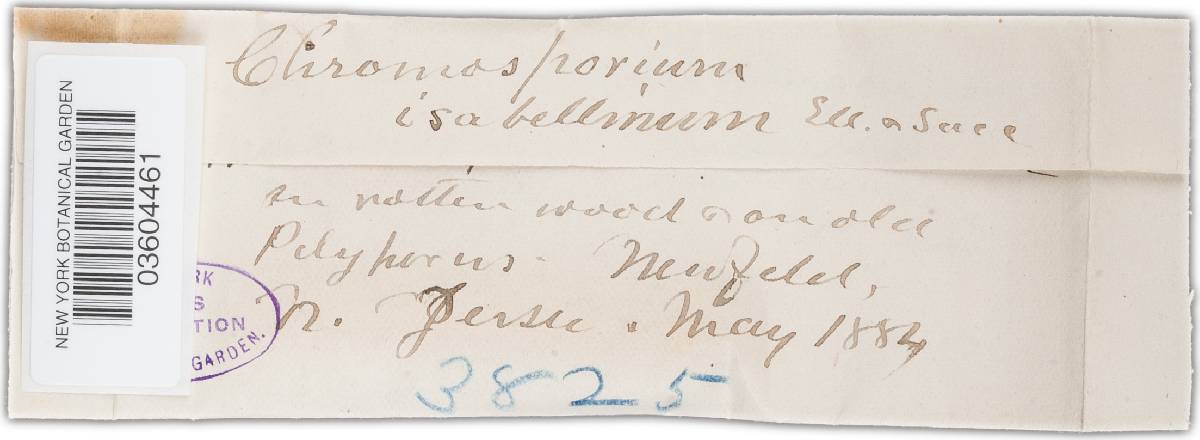 Chromosporium
isabellinum Ell. & Sacc
on rotten wood & on old
Polyporus. Newfield,
N. Jersey. May 1884
3825
NEW YORK BOTANICAL GARDEN
03604461
RK
S
TION
GARDEN.